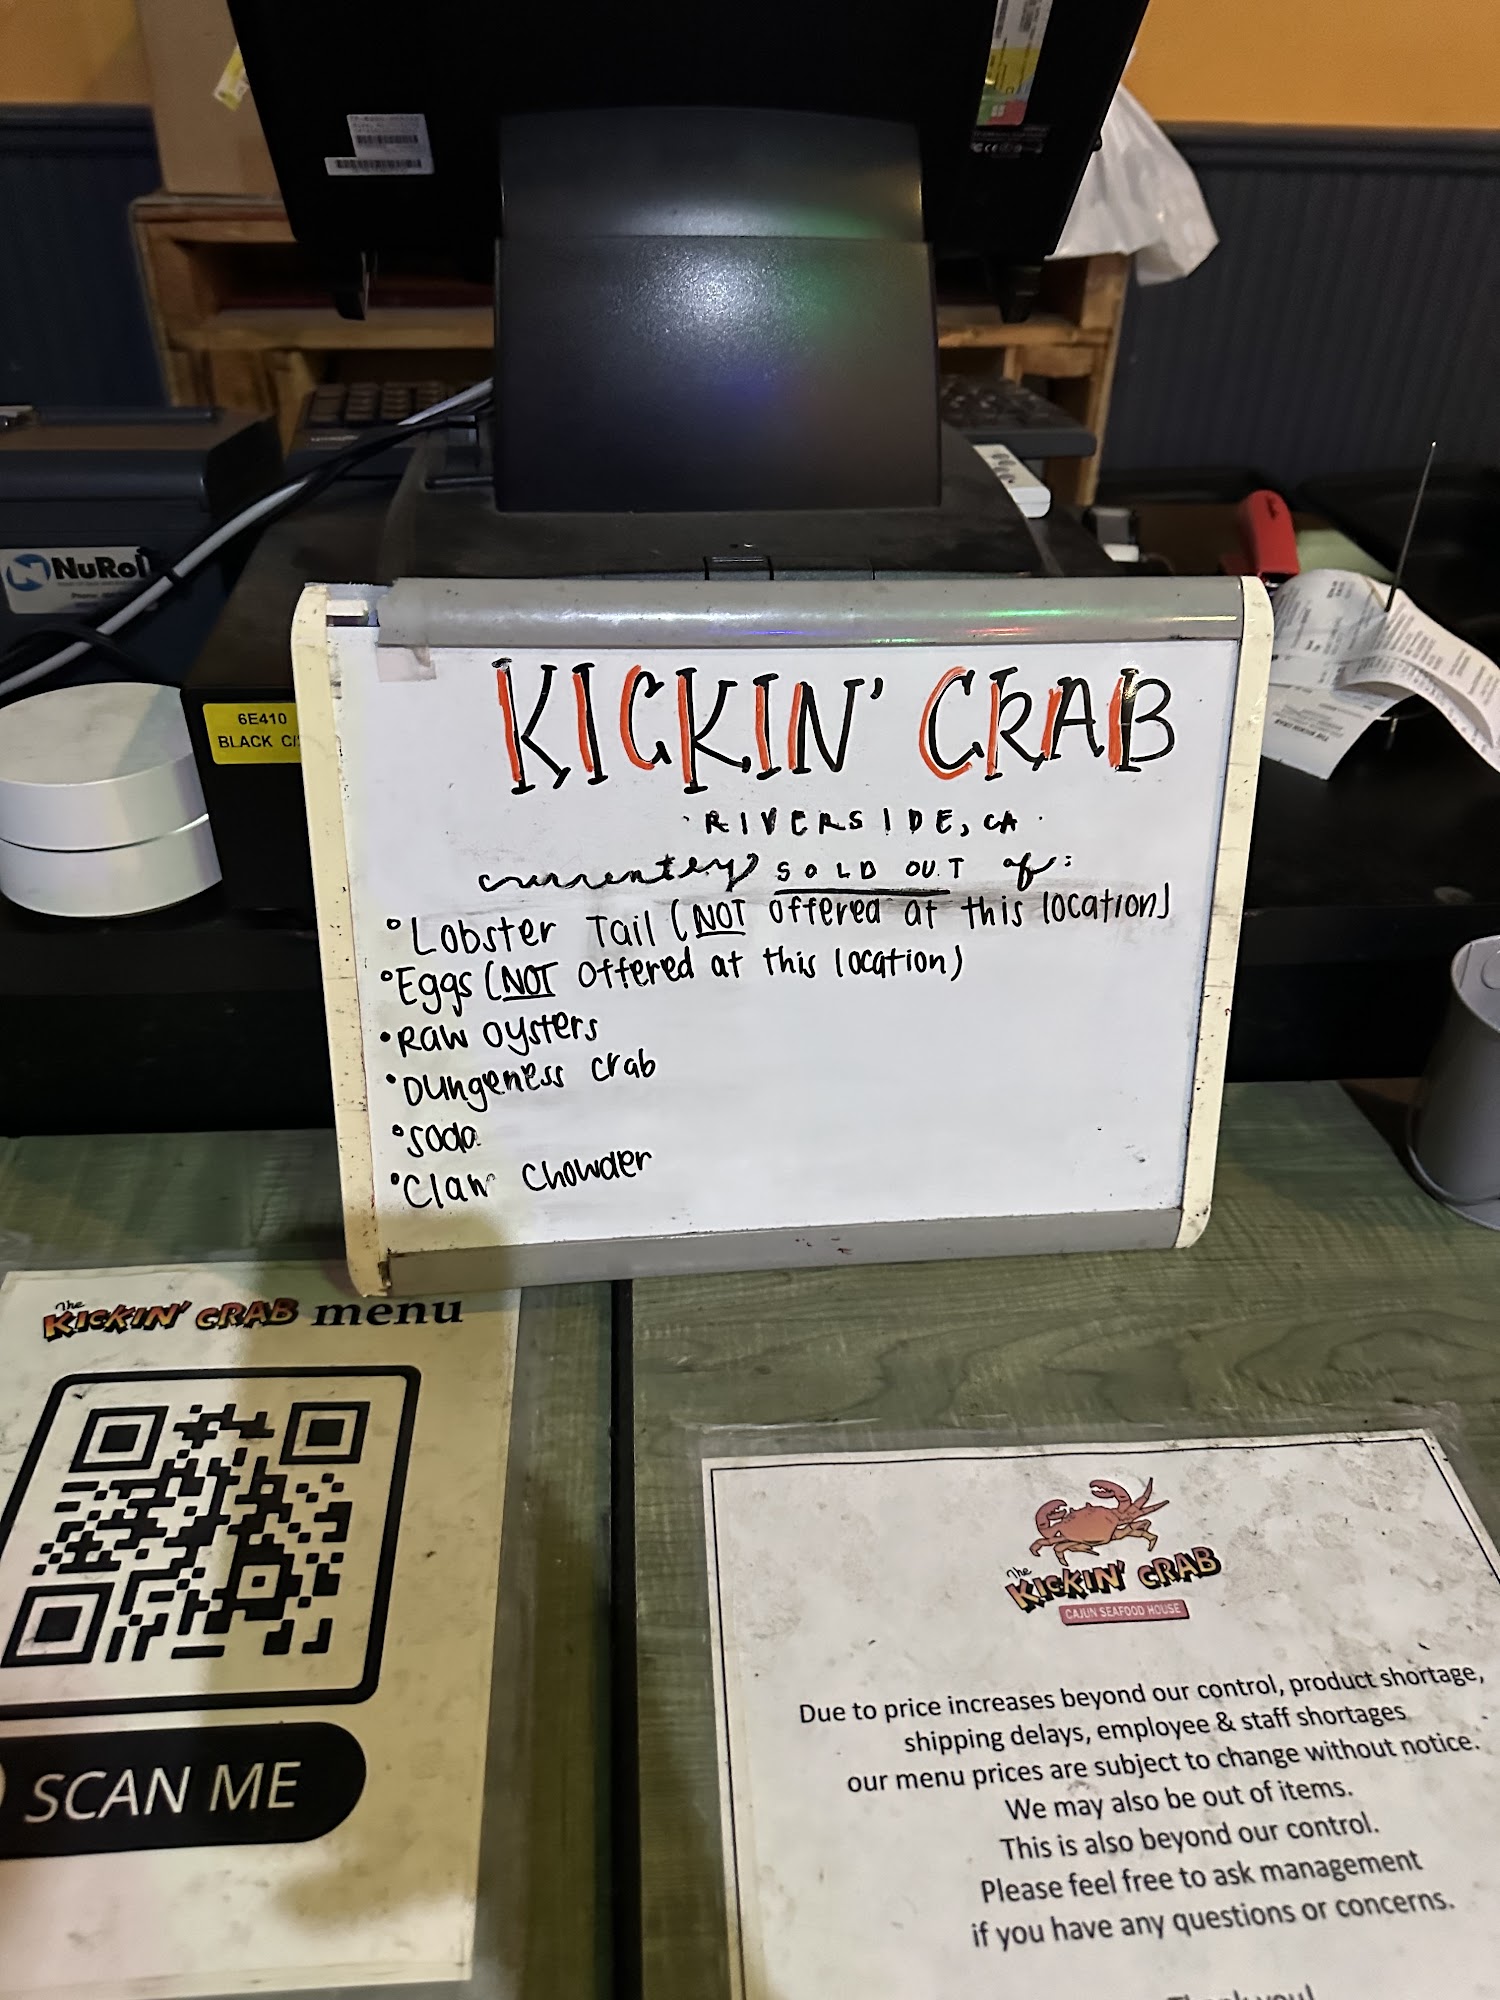 NuRol
6E410
BLACK
KICKIN' CRAB
RIVERSIDE, CA
currently SOLD OUT of:
Lobster Tail (NOT offered at this location)
Eggs (NOT offered at this location)
Raw oysters
Dungeness crab
Soda
Clam Chowder
The KICKIN' CRAB menu
SCAN ME
The
KICKIN' CRAB
CAJUN SEAFOOD HOUSE
Due to price increases beyond our control, product shortage,
shipping delays, employee & staff shortages
our menu prices are subject to change without notice.
We may also be out of items.
This is also beyond our control.
Please feel free to ask management
if you have any questions or concerns.
Thank you!